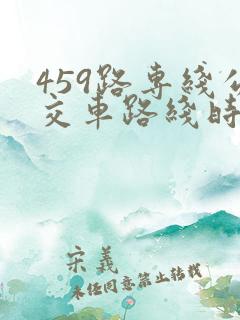 459路专綫公
交车路綫时
宋義
未经同意禁止转载